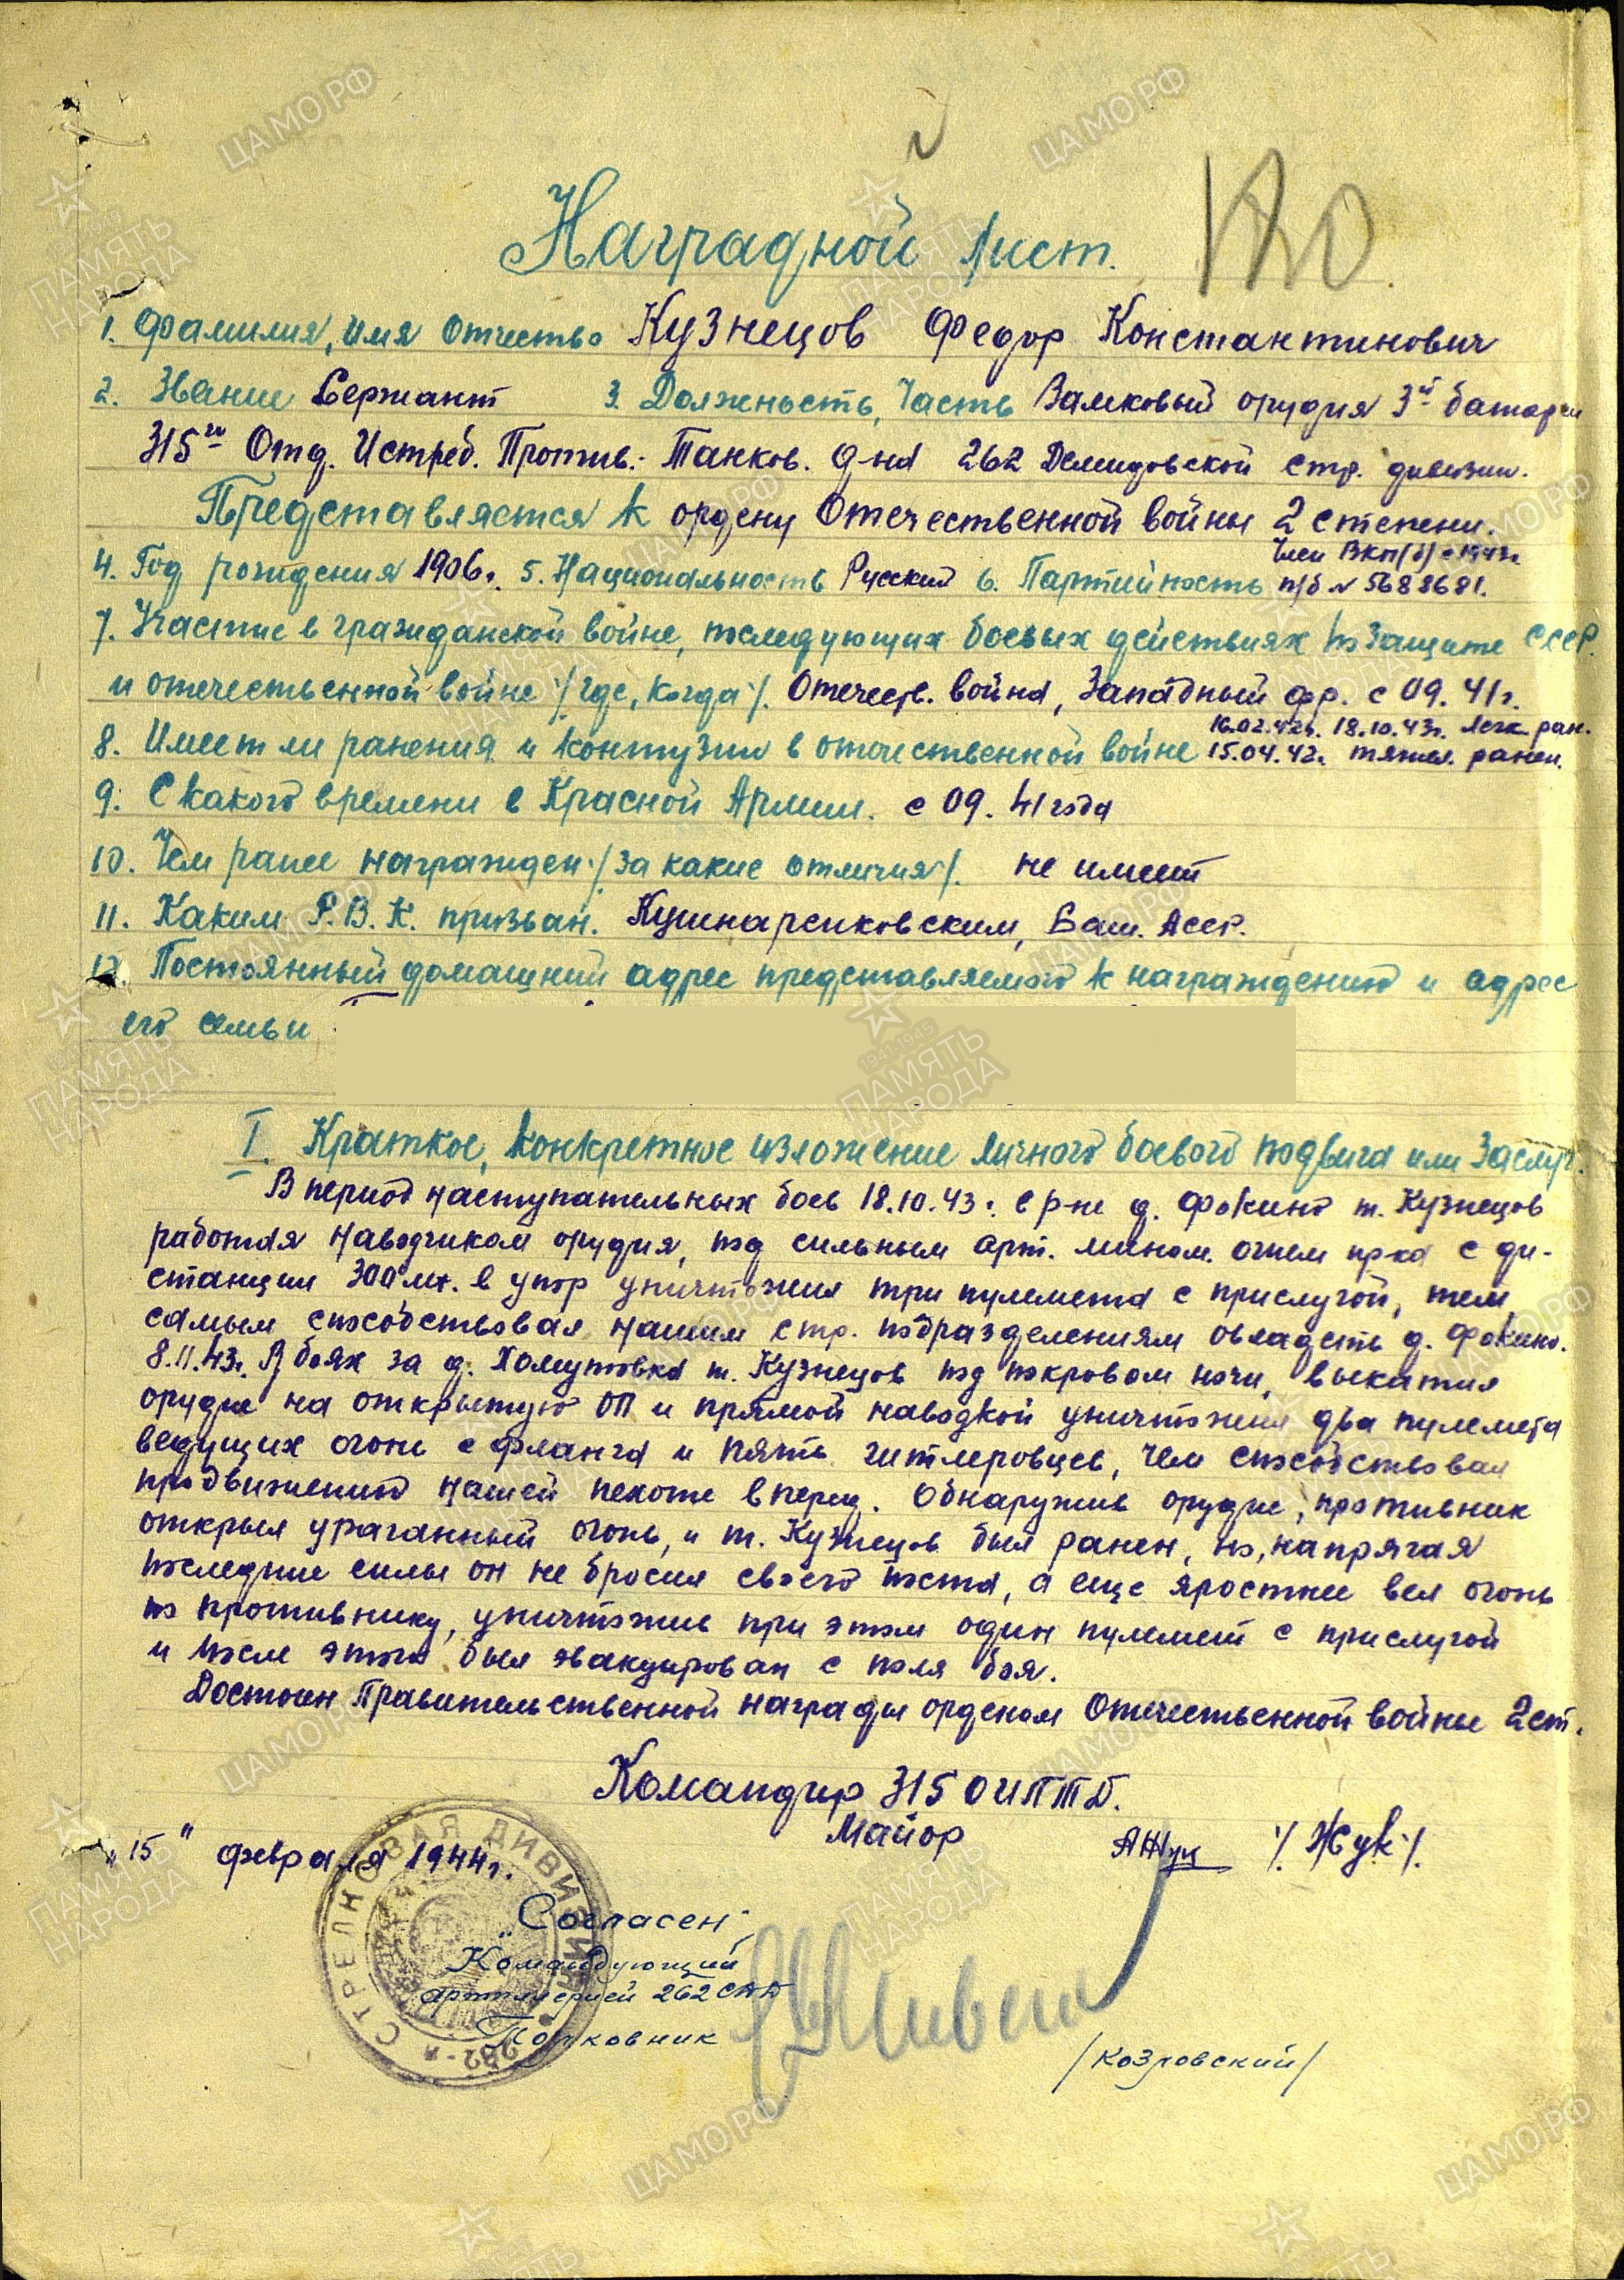 Наградной лист.
120
1. Фамилия, имя отчество Кузнецов Федор Константинович
2. Звание Сержант 3. Должность, часть Замковый орудия 3й батареи
315го Отд. Истреб. Против.-Танков. д-на 262 Демидовской стр. дивизии.
Представляется к ордену Отечественной войны 2 степени.
Член ВКП(б) с 1943г.
4. Год рождения 1906г. 5. Национальность Русский 6. Партийность п/б № 5688681.
7. Участие в гражданской войне, последующих боевых действиях по защите СССР.
и отечественной войне /где, когда/. Отечеств. война, Западный фр. с 09.41г.
16.02.42г. 18.10.43г. легк. ран.
8. Имеет ли ранения и контузии в отечественной войне 15.04.42г. тяжел. ранен.
9. С какого времени в Красной Армии. с 09.41 года
10. Чем ранее награжден /за какие отличия/. не имеет
11. Каким Р.В.К. призван. Кушнаренковским, Баш. АССР.
12. Постоянный домашний адрес представляемого к награждению и адрес
его семьи
I. Краткое, конкретное изложение личного боевого подвига или заслуг.
В период наступательных боев 18.10.43г. в р-не д. Фокино т. Кузнецов
работая наводчиком орудия, под сильным арт. мином. огнем пр-ка с ди-
станции 300 мт. в упор уничтожил три пулемета с прислугой, тем
самым способствовал нашим стр. подразделениям овладеть д. Фокино.
8.11.43г. В боях за д. Хомутовка т. Кузнецов под покровом ночи, выкатил
орудие на открытую ОП и прямой наводкой уничтожил два пулемета
ведущих огонь с фланга и пять гитлеровцев, чем способствовал
продвижению нашей пехоте вперед. Обнаружив орудие, противник
открыл ураганный огонь, и т. Кузнецов был ранен, но, напрягая
последние силы он не бросил своего поста, а еще яростнее вел огонь
по противнику, уничтожив при этом один пулемет с прислугой
и после этого был эвакуирован с поля боя.
Достоин Правительственной награды орденом Отечественной войны 2 ст.
Командир 315 ОИПТД.
Майор АЖук /Жук/.
„15" февраля 1944г.
СТРЕЛКОВАЯ ДИВИЗИЯ
262-я
„Согласен"
Командующий
артиллерией 262 СДД
Полковник
/Козровский/
ЦАМО РФ
ПАМЯТЬ НАРОДА
1941-1945